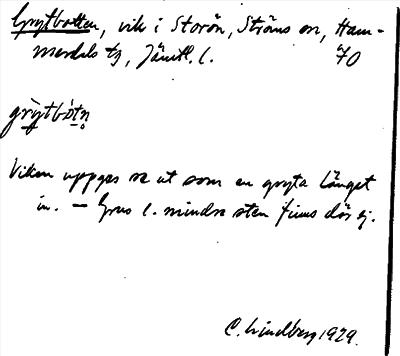 Grytbotten, vik i Storön, Ströms sn, Ham-
merdals tg, Jämtl. l. 70
grỳtbòtn̥
Viken uppges se ut som en gryta längst
in. — Grus l. mindre sten finns där ej.
C. Lindberg 1929.